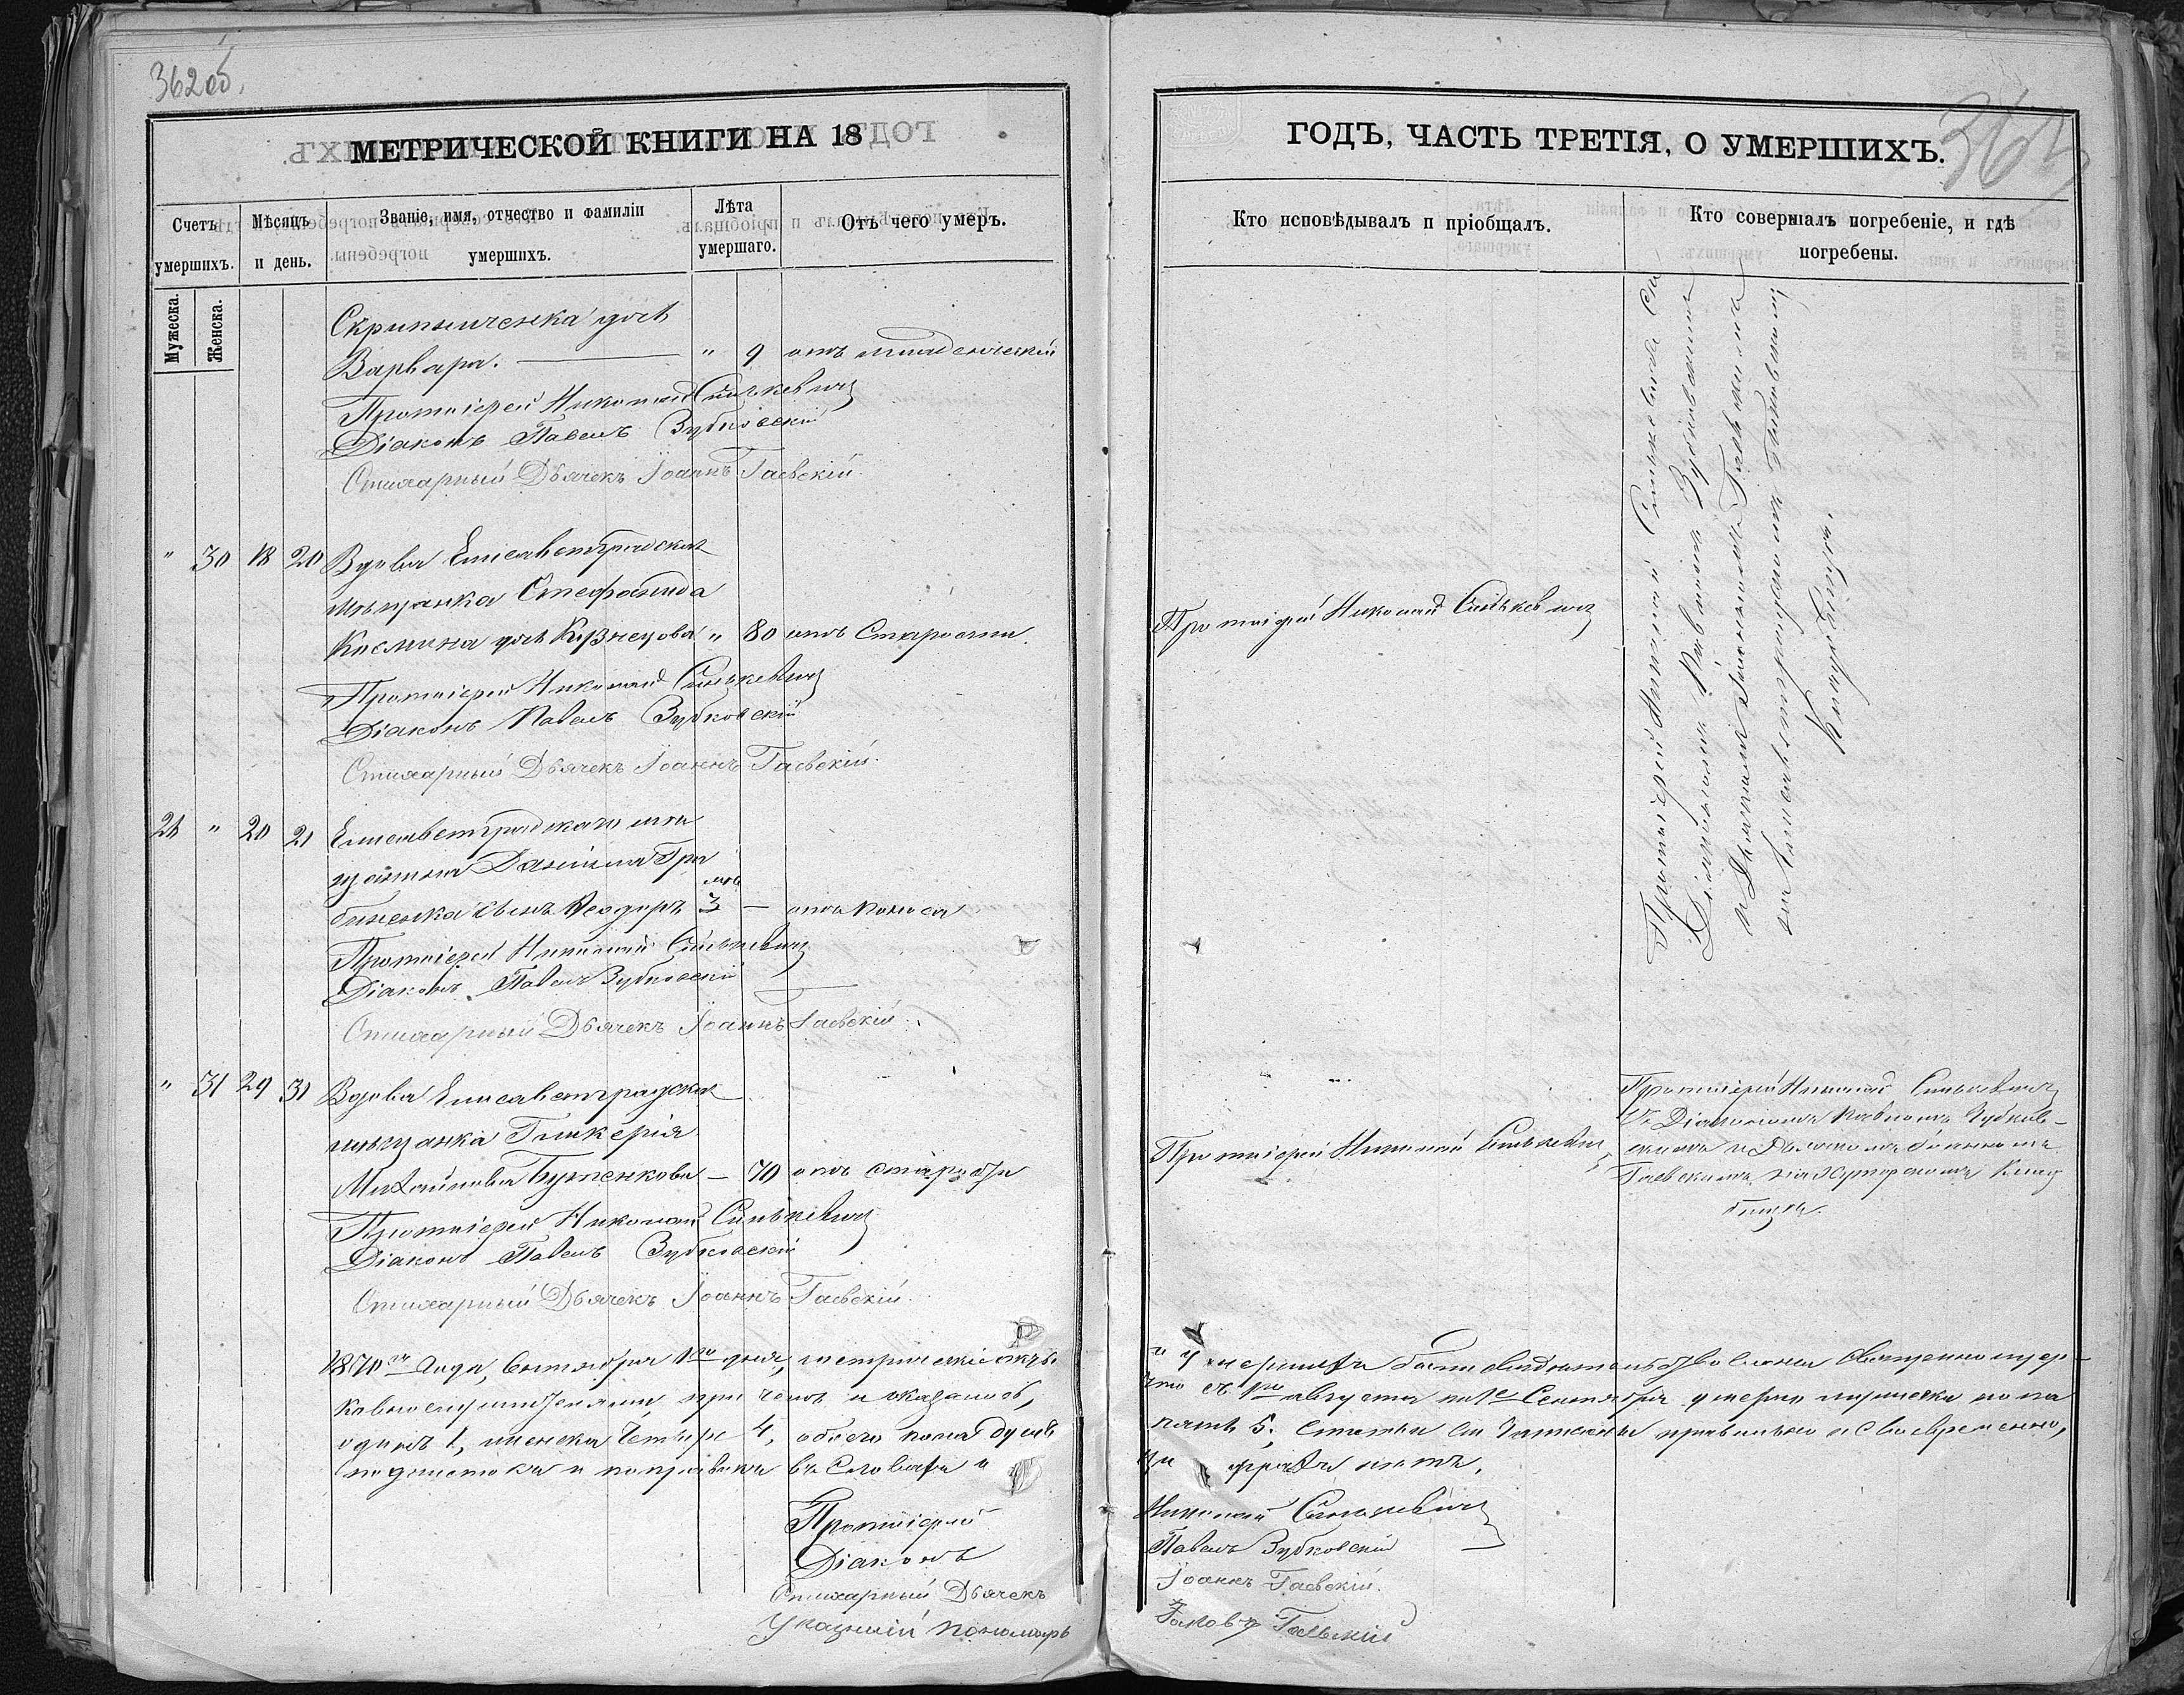 362 об.
МЕТРИЧЕСКОЙ КНИГИ НА 18
Счетъ умершихъ.
Мужеска.
Женска.
Мѣсяцъ и день.
Званіе, имя, отчество и фамиліи умершихъ.
Лѣта умершаго.
Отъ чего умеръ.
Скрипниченка дочь
Варвара. — " 9 отъ младенческій
Протоіерей Николай Синькевичъ
Діаконъ Павелъ Зубковскій
Стихарный Дьячекъ Іоаннъ Гаевскій.
" 30 18 20 Вдова Елисаветградская
мѣщанка Стефанида
Космина дочь Кузнецова " 80 отъ Старости
Протоіерей Николай Синькевичъ
Діаконъ Павелъ Зубковскій
Стихарный Дьячекъ Іоаннъ Гаевскій.
" 20 21 Елисаветградскаго мѣ
щанина Даніила Гра
бенка сынъ Ѳеодоръ 3 — отъ поноса
Протоіерей Николай Синькевичъ
Діаконъ Павелъ Зубковскій
Стихарный Дьячекъ Іоаннъ Гаевскій.
" 31 29 31 Вдова Елисаветградская
мѣщанка Гликерія
Михайлова Бутенкова — 70 отъ старости
Протоіерей Николай Синькевичъ
Діаконъ Павелъ Зубковскій
Стихарный Дьячекъ Іоаннъ Гаевскій.
1870го Года, Сентября 1го дня, метрическіе
при чемъ и оказалось,
одинъ 1, женска Четыре 4, обоего пола душъ
подчистокъ и поправокъ въ Словахъ и
Протоіерей
Діаконъ
Стихарный Дьячекъ
Указный Пономарь
363
ГОДЪ, ЧАСТЬ ТРЕТІЯ, О УМЕРШИХЪ.
Кто исповѣдывалъ и пріобщалъ.
Кто совершалъ погребеніе, и гдѣ погребены.
Протоіерей Николай Синькевичъ
Протоіерей Николай Синькевичъ съ
Діакономъ Павломъ Зубковскимъ
и Дьячкомъ Іоанномъ Гаевскимъ
на Елисаветградскомъ
Кладбищѣ.
Протоіерей Николай Синькевичъ
Протоіерей Николай Синькевичъ
Съ Діакономъ Павломъ Зубков-
скимъ и Дьячкомъ Іоанномъ
Гаевскимъ на Хуторскомъ Клад
бищѣ.
умершихъ были освидѣтельствованы Священноцер-
что съ 1го августа по 1е Сентября умерло мужеска пола
пять 5; Статьи сіи записаны правильно и Своевременно,
цыфрахъ нѣтъ.
Николай Синькевичъ
Павелъ Зубковскій
Іоаннъ Гаевскій.
Іаковъ Гаевскій